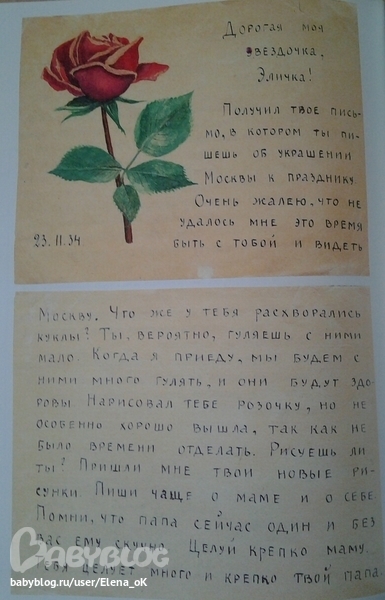 Дорогая моя
звездочка,
Эличка!
Получил твое пись-
мо, в котором ты пи-
шешь об украшении
Москвы к празднику.
Очень жалею, что не
удалось мне это время
быть с тобой и видеть
23.11.34
Москву. Что же у тебя расхворались
куклы? Ты, вероятно, гуляешь с ними
мало. Когда я приеду, мы будем с
ними много гулять, и они будут здо-
ровы. Нарисовал тебе розочку, но не
особенно хорошо вышла, так как не
было времени отделать. Рисуешь ли
ты? Пришли мне твои новые ри-
сунки. Пиши чаще о маме и о себе.
Помни, что папа сейчас один и без
вас ему скучно. Целуй крепко маму.
Тебя целует много и крепко твой папа.
BABYBLOG
babyblog.ru/user/Elena_oK